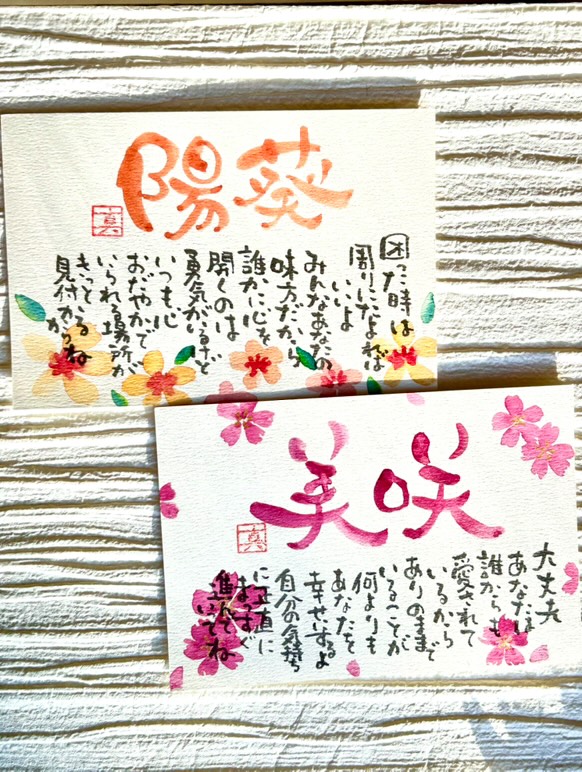 陽葵
困った時は
周りにたよれば
いいよ
みんなあなたの
味方だから
誰かに心を
開くのは
勇気がいるけど
いつも心
おだやかで
いられる場所が
きっと
見付かるね
真
美咲
大丈夫
あなたは
誰からも
愛されて
いるから
ありのままで
いることが
何よりも
あなたを
幸せにするよ
自分の気持ち
に正直に
まっすぐ
進んで
いてね
真